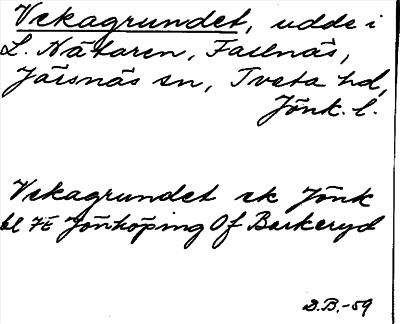 Vekagrundet, udde i
L. Nätaren, Failnäs,
Järsnäs sn, Tveta hd,
Jönk. l.
Vekagrundet ek Jönk
bl 7E Jönköping Of Barkeryd
D.B.-59